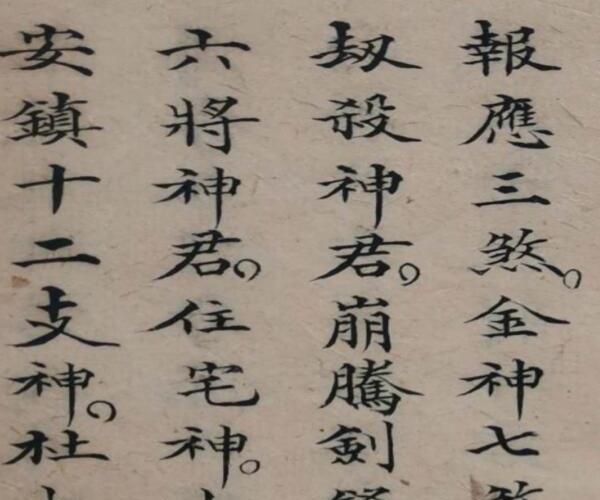 報應三煞。金神七
刼殺神君。崩騰劍
六將神君。住宅神。
安鎮十二支神。杜